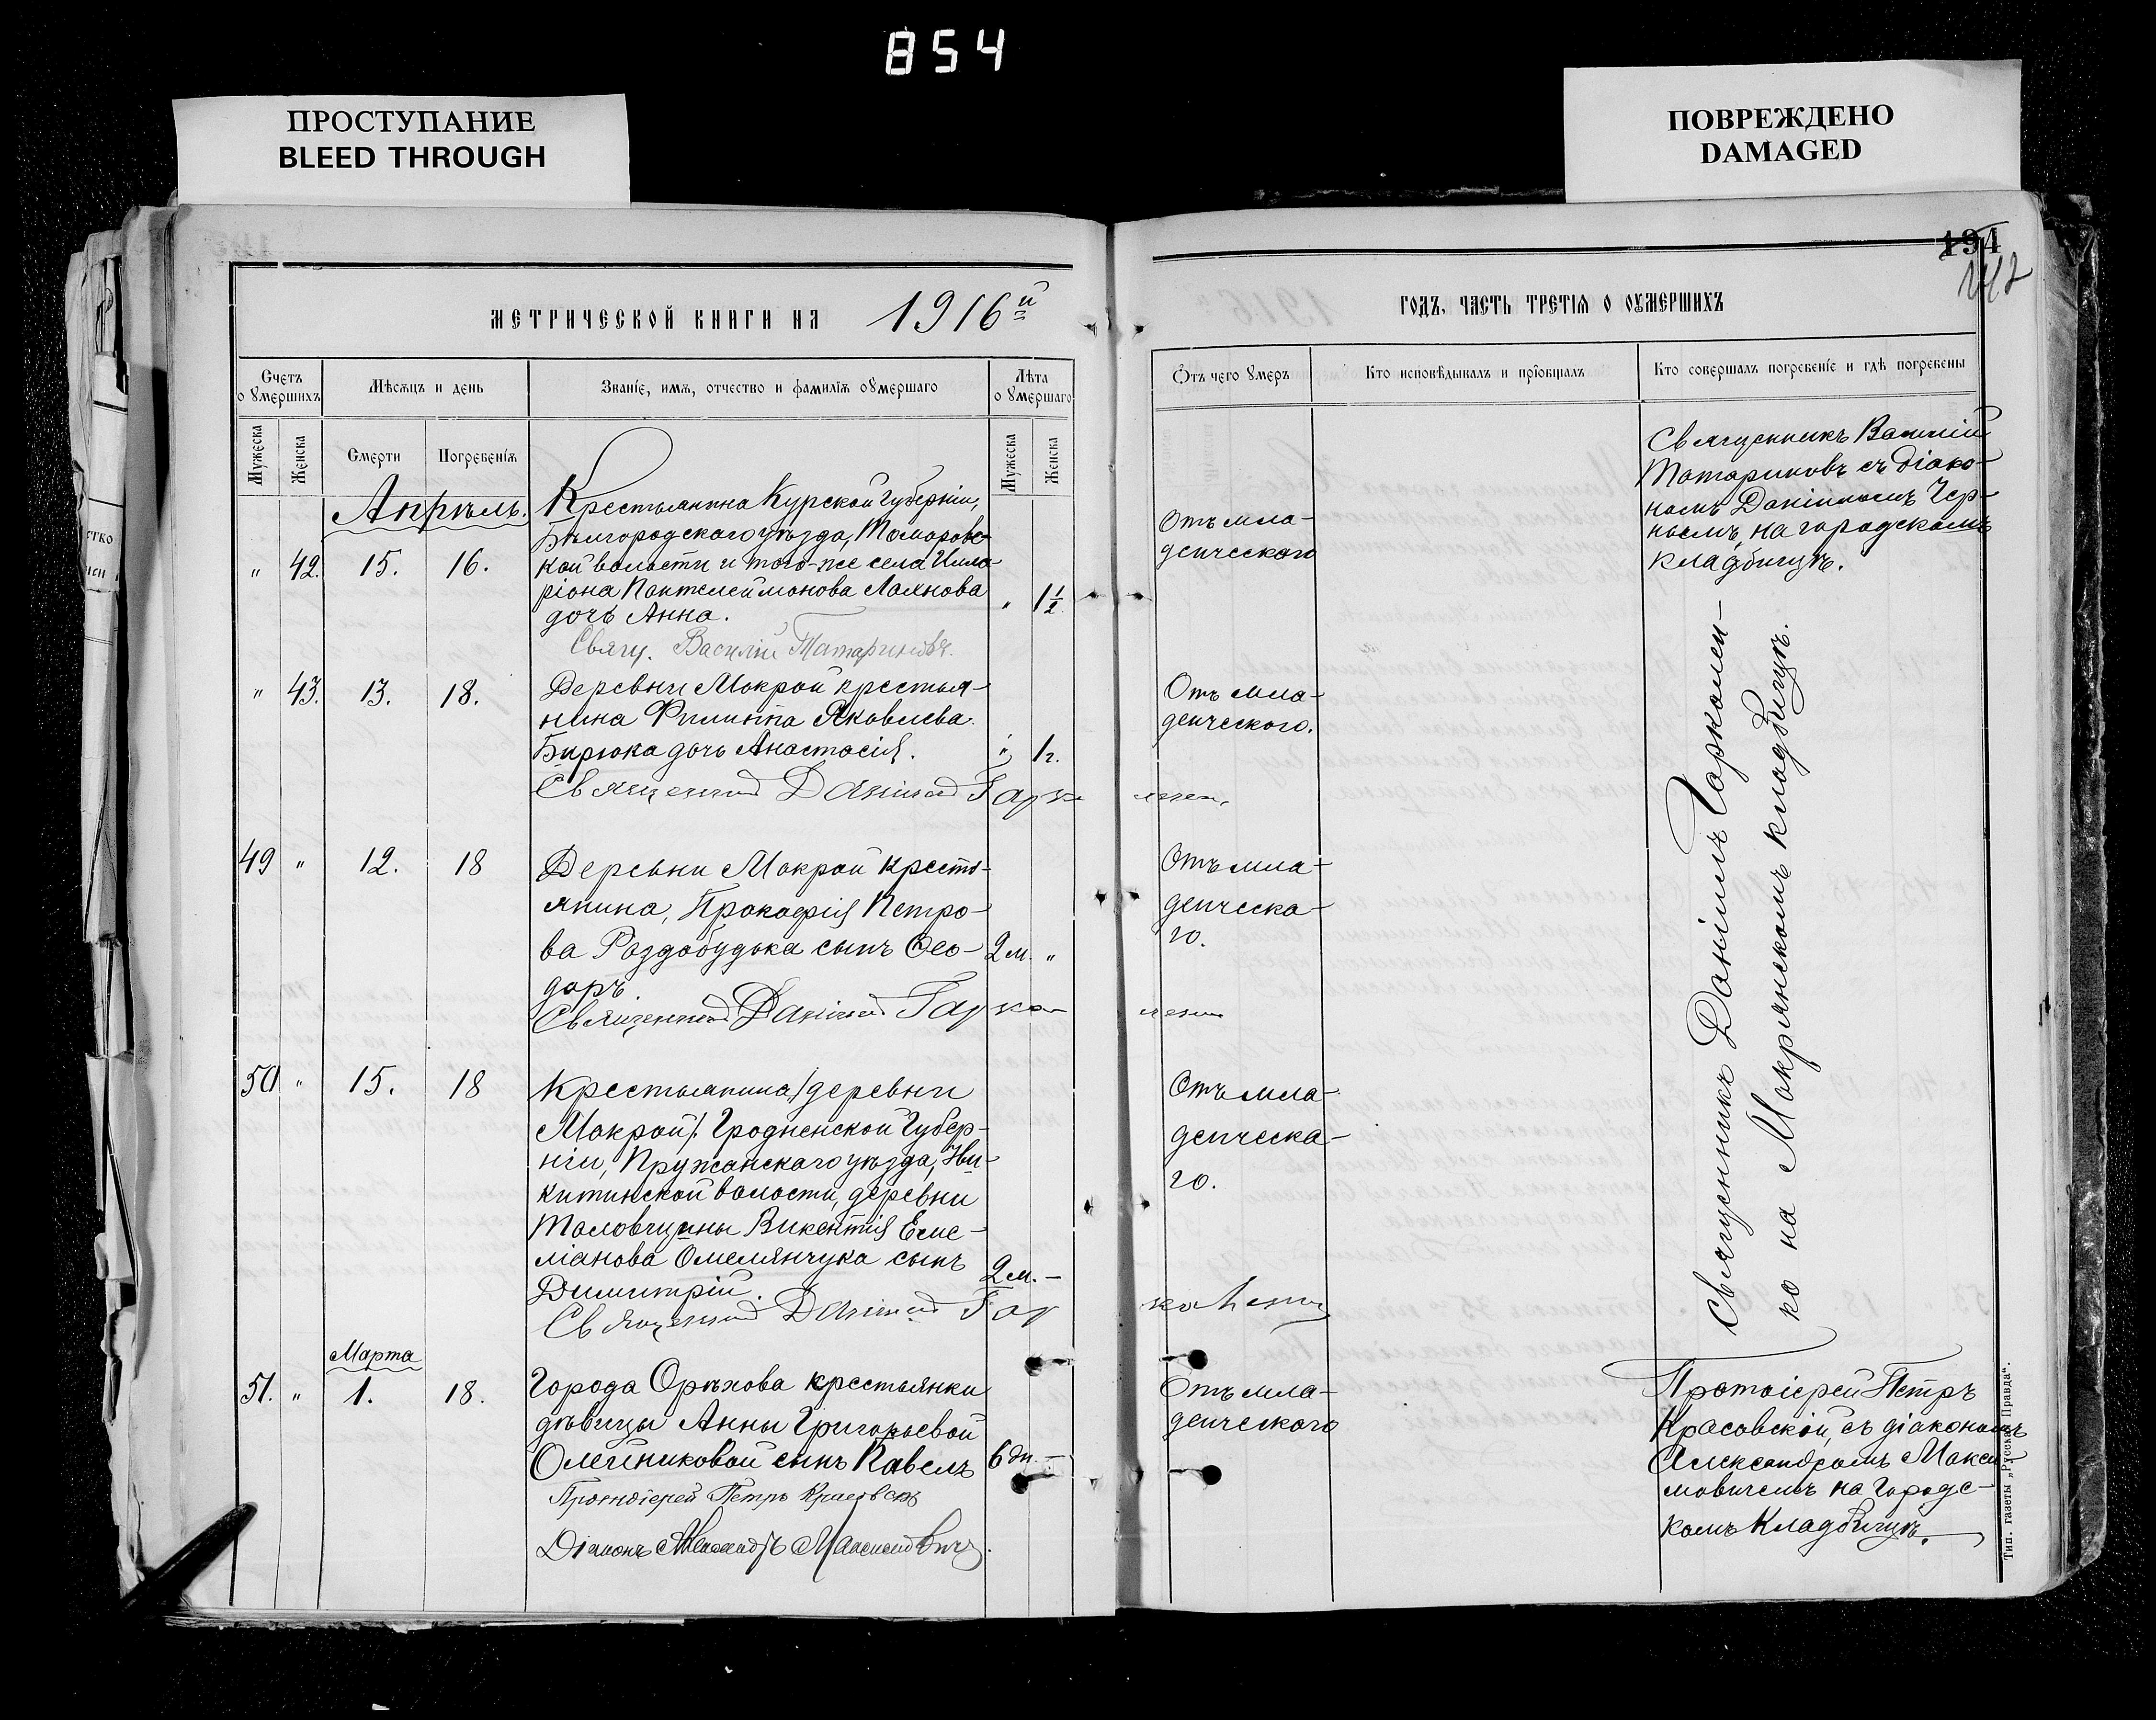 854
ПРОСТУПАНИЕ
BLEED THROUGH
ПОВРЕЖДЕНО
DAMAGED
194
МЕТРИЧЕСКОЙ КНИГИ НА 1916й
ГОДЪ, ЧАСТЬ ТРЕТІЯ О ОУМЕРШИХЪ
Счетъ о умершихъ
Мѣсяцъ и день
Званіе, имя, отчество и фамилія оумершаго
Лѣта о умершаго
Мужеска
Женска
Смерти
Погребенія
Мужеска
Женска
Отъ чего умеръ
Кто исповѣдывалъ и пріобщалъ
Кто совершалъ погребеніе и гдѣ погребены
Апрѣль.
" 42. 15. 16.
Крестьянина Курской Губерніи,
Бѣлгородскаго уѣзда, Томаров-
кой волости и того-же села Ила-
ріона Пантелеймонова
дочь Анна.
" 1½
Свящ. Василій Татариновъ.
Отъ мла-
денческаго
Священникъ Василій
Татариновъ съ діако-
номъ Даніиломъ Чер-
нымъ, на городскомъ
кладбищѣ.
" 43. 13. 18.
Деревни Мокрой крестья-
нина Филиппа Яковлева
Бирюка дочь Анастасія.
" 1г.
Священникъ Даніилъ Гарко-
Отъ мла-
денческаго.
49 " 12. 18
Деревни Мокрой кресть-
янина, Прокофія Петро-
ва Роздобудька сынъ Ѳео-
доръ.
2 м. "
Священникъ Даніилъ Гарко
Отъ мла-
денческа-
го.
50 " 15. 18
Крестьянина /деревни
Мокрой/. Гродненской Губер-
ніи, Пружанскаго уѣзда,
китинской волости, деревни
Таловщины Викентія Еме-
ліанова Омелянчука сынъ
Димитрій.
2 м. -
Священникъ Даніилъ Гар
Отъ мла-
денческа-
го.
Священникъ Даніилъ Гарколен-
ко на Мокрянскомъ кладбищѣ.
Марта
51. " 1. 18.
Города Орѣхова крестьянки
дѣвицы Анны Григорьевой
Олейниковой сынъ Павелъ
6 дн. -
Протоіерей Петръ Красовскій
Діаконъ Александръ Максимовичъ.
Отъ мла-
денческаго
Протоіерей Петръ
Красовскій, съ діакономъ
Александромъ Макси-
мовичемъ на Городс-
комъ Кладбищѣ.
Тип. газеты „Русская Правда“.